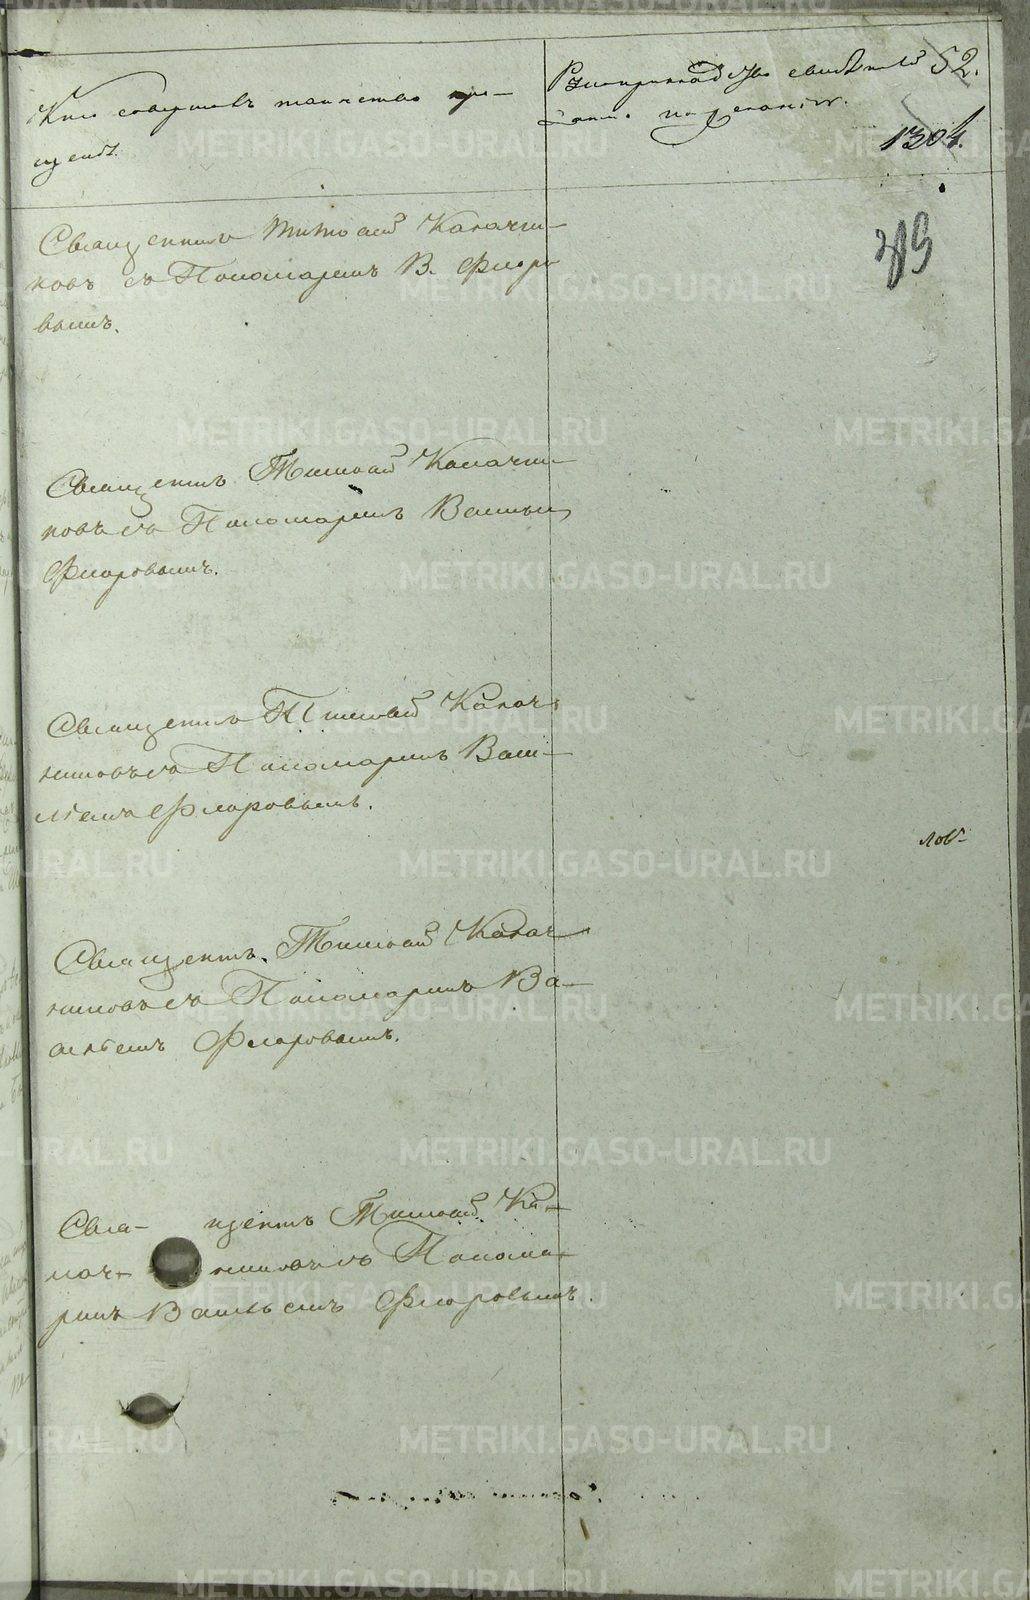 Кто совершалъ таинство кре-
щенія.
Рукоприкладство свидѣтелей
записи по желанію.
52.
1304.
Священникъ Тимофей Калачни-
ковъ съ Пономаремъ В. Флоро-
вымъ.
Священникъ Тимофей Калачни-
ковъ съ Пономаремъ Васильем
Флоровымъ.
Священникъ Тимофей Калач-
никовъ съ Пономаремъ Васи-
льемъ Флоровымъ.
лов-
Священникъ Тимофей Калач-
никовъ съ Пономаремъ Ва-
сильемъ Флоровымъ.
Свя- щенникъ Тимофей Ка-
лач- никовъ съ Понома-
ремъ Васильемъ Флоровымъ.
METRIKI.GASO-URAL.RU